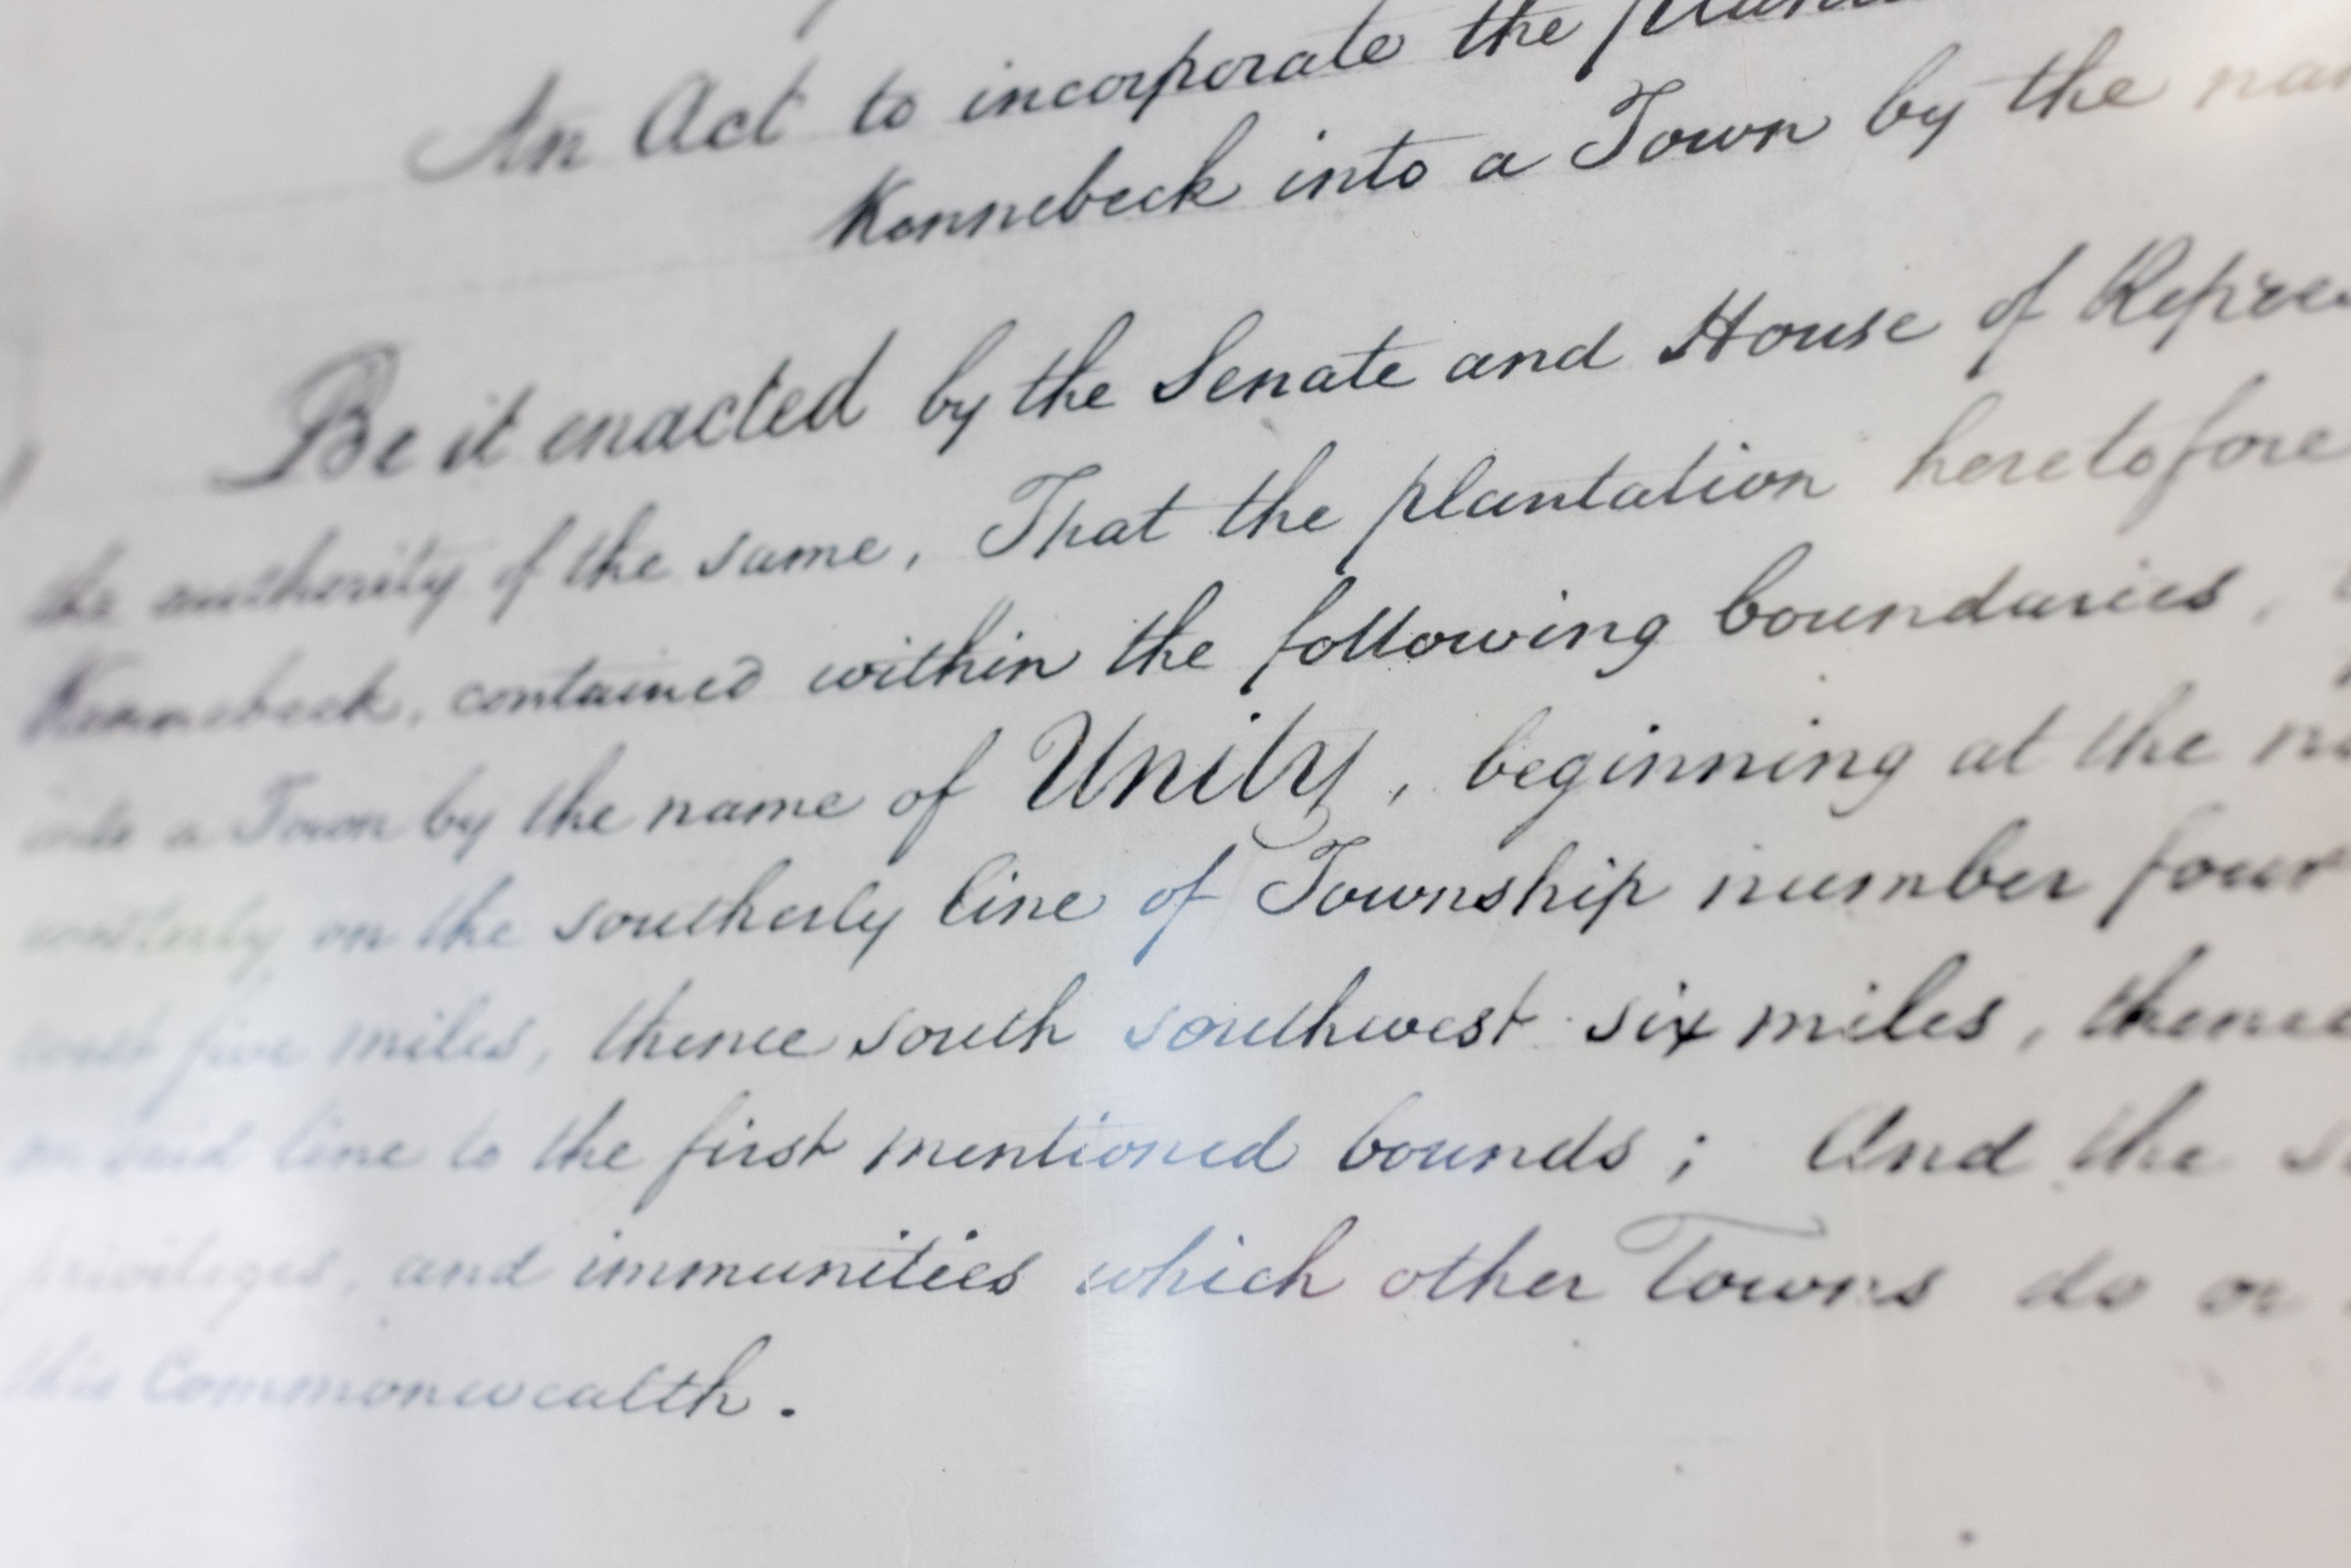 An Act to incorporate the
Kennebeck into a Town by the
Be it enacted by the Senate and House of
the authority of the same, That the plantation heretofore
Kennebeck, contained within the following boundaries,
into a Town by the name of Unity, beginning at the
on the southerly line of Township number four
west five miles, thence south southwest six miles, thence
on said line to the first mentioned bounds; And the
privileges, and immunities which other Towns do or
this Commonwealth.